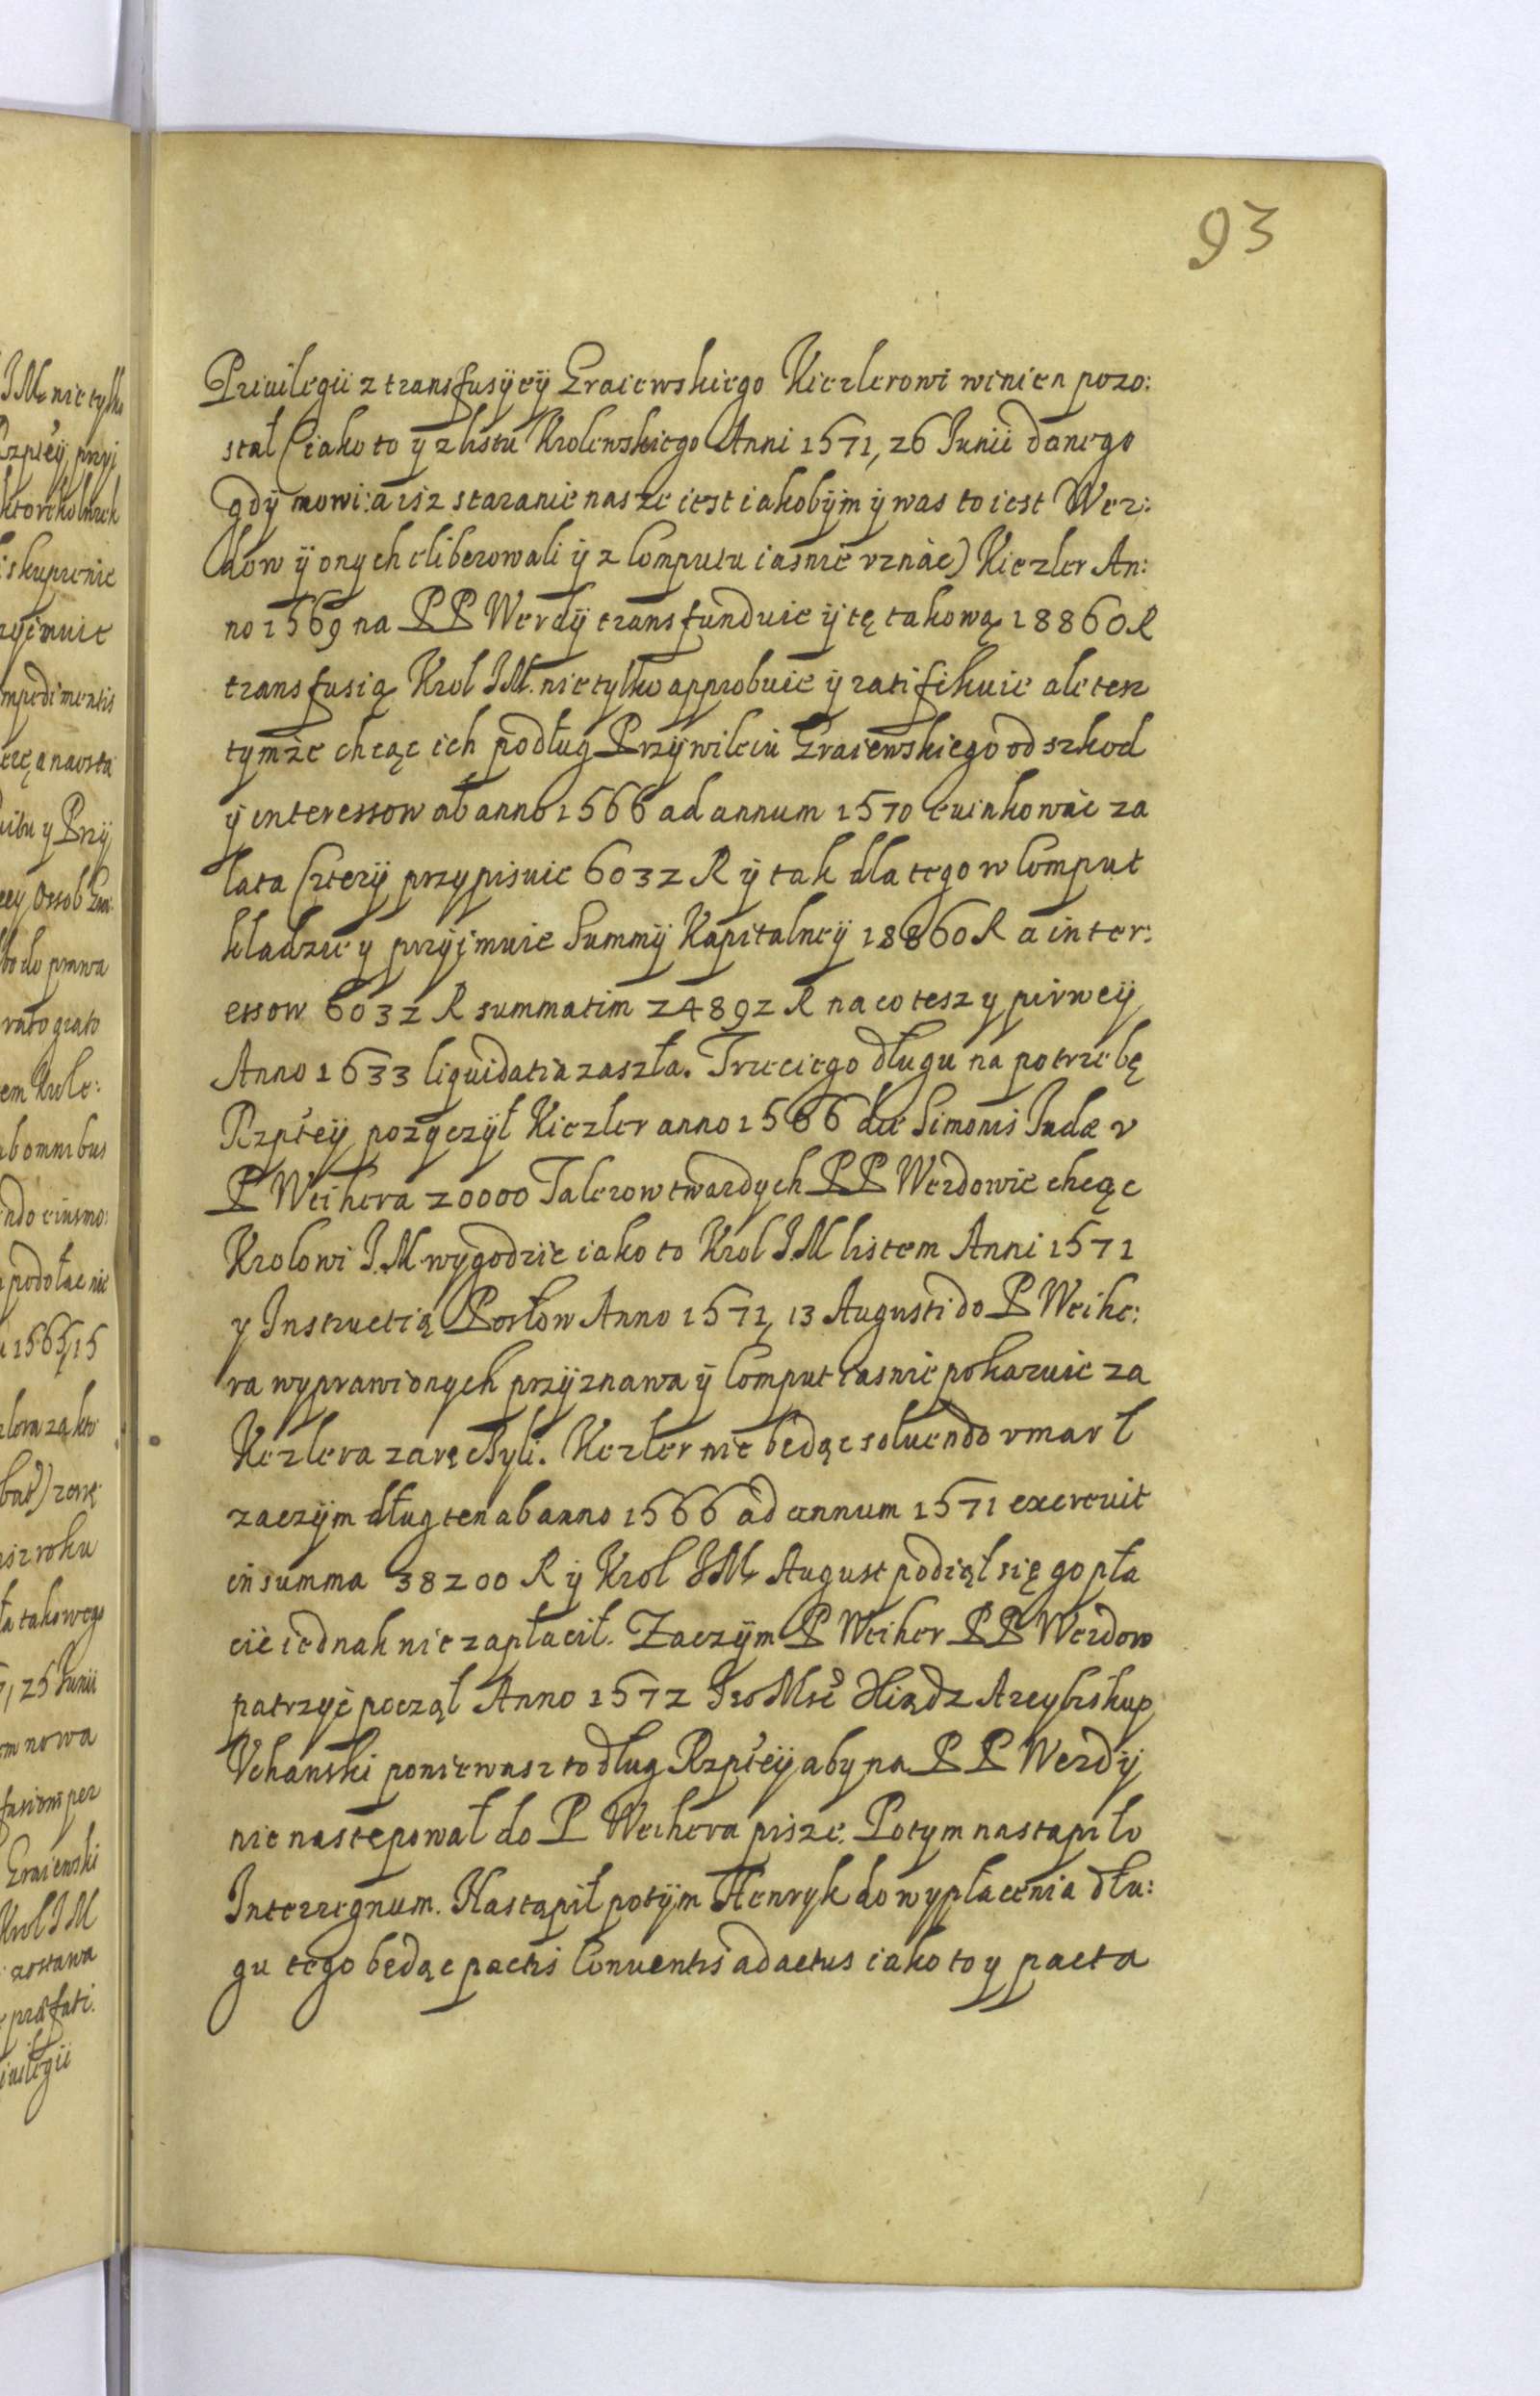 93
Priuilegii z transfusÿeÿ Graiewskiego Kiezlerowi winien pozo:
stał (iako to ÿ z listu Krolewskiego Anni 1571, 26 Junii danego
gdÿ mowi: a isz staranie nasze iest iakobÿm ÿ was to iest Wer:
dow ÿ onych eliberowali ÿ z Computu iasnie vznáć) Kiezler An:
no 1569 na PP Werdÿ transfunduie ÿ tę takową 18860 R
transfusią Krol JM. nie tylko approbuie ÿ ratifikuie ale tesz
tymże chcąc ich podług Przÿwileiu Graiewskiego od szkod
ÿ interessow ab anno 1566 ad annum 1570 euinkowáć za
lata Czterÿ przypisuie 6032 R ÿ tak dla tego w Comput
kładzie y przÿjmuie Summÿ Kapitalneÿ 18860 R a inter:
essow 6032 R summatim 24892 R na co tesz y pirweÿ
Anno 1633 liquidatia zaszła. Trzeciego długu na potrzebę
Rzptéÿ pozÿczÿł Kiezler anno 1566 die Simonis Judæ v
P Weihera 20000 Talerow twardych PP Werdowie chcąc
Krolowi J.M. wygodzić iako to Krol J.M listem Anni 1571
y Instructią Posłow Anno 1571, 13 Augusti do P Weihe:
ra wyprawionych przÿznawa ÿ Comput iasnie pokazuie za
Kezlera zaręczyli. Kezler nie bedąc soluendo vmarł
zaczÿm dług ten ab anno 1566 ad annum 1571 excreuit
in summa 38200 R ÿ Krol JM August podiął się go pła
cić iednak nie zapłacił. Zaczÿm P Weiher PP Werdow
patrzyć począł Anno 1572 Jeo Mść Xiądz Arcybiskup
Vchanski poniewasz to dług Rzptéÿ aby na PP Werdÿ
nie nastepował do P Weihera pisze. Potym nastąpiło
Interregnum. Nastąpił potÿm Henryk do wypłacenia dłu:
gu tego bedąc pactis Conuentis adactus iako to y pacta